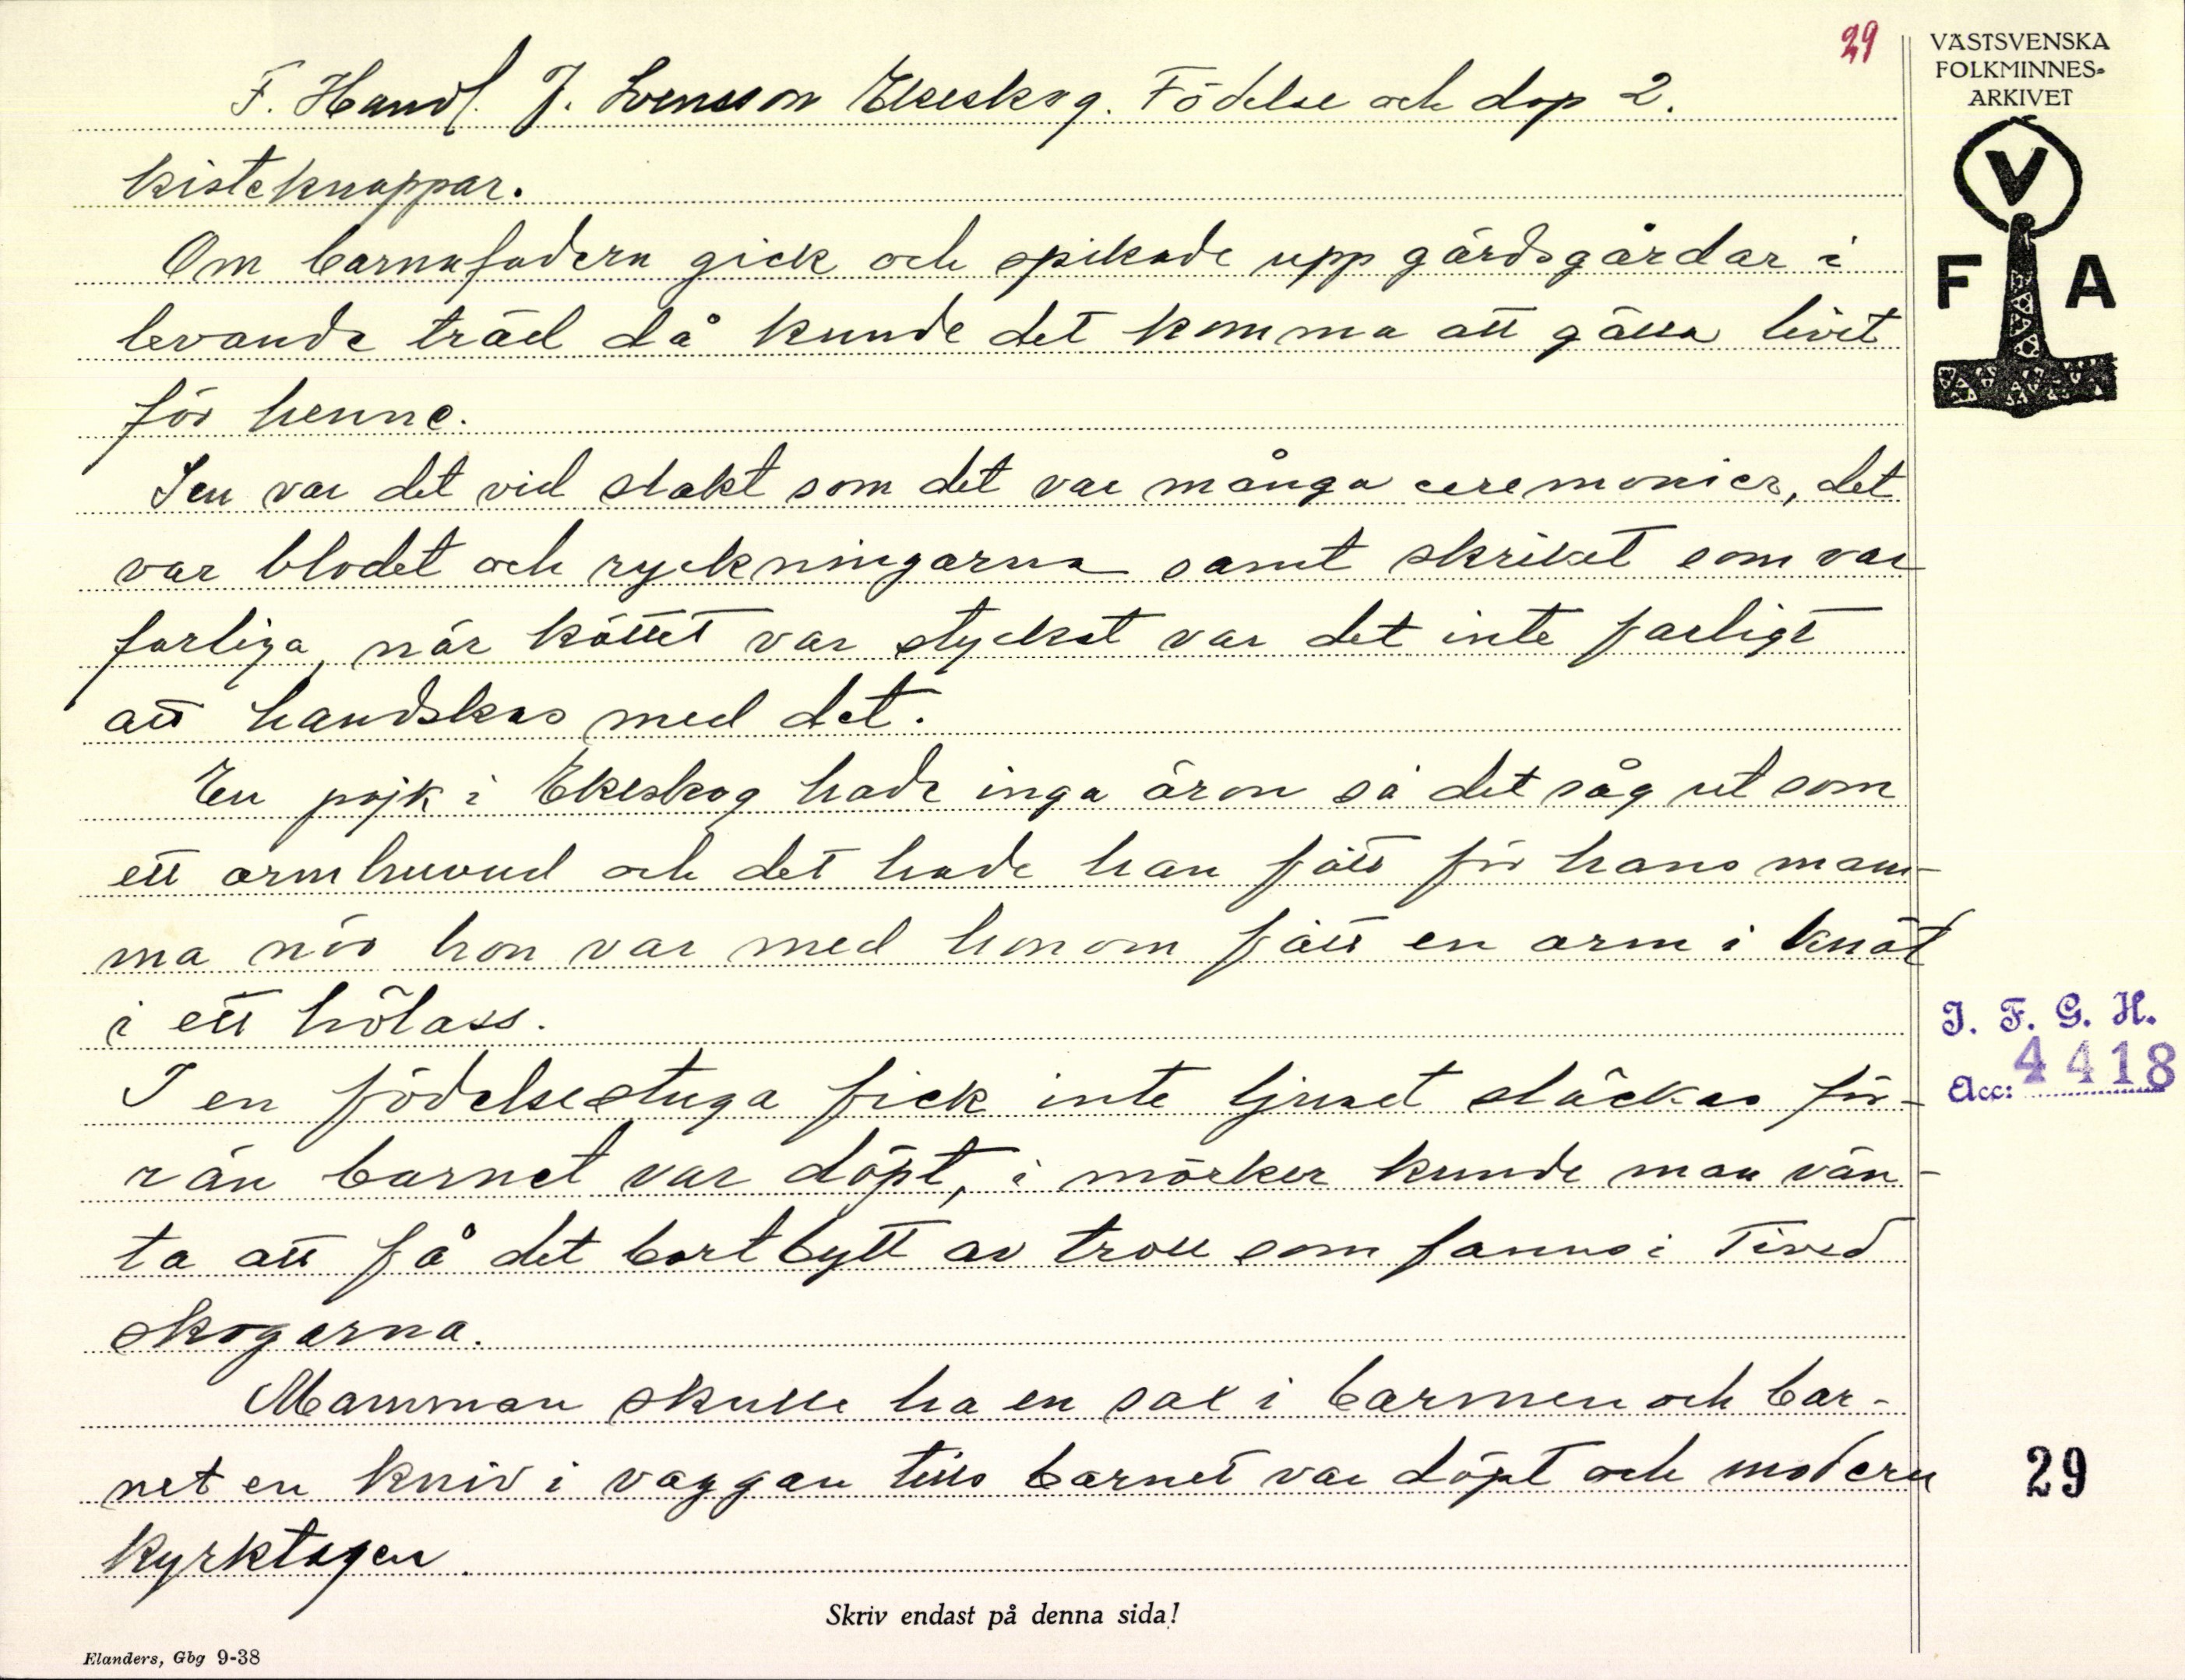 29
VÄSTSVENSKA
FOLKMINNES-
ARKIVET
V
F A
F. Handl. J. Svensson Ekeskog. Födelse och dop 2.
kisteknappar.
Om barnafadern gick och spikade upp gärdsgårdar i
levande träd då kunde det komma att gälla livet
för henne.
Sen var det vid slakt som det var många ceremonier, det
var blodet och ryckningarna samt skriket som var
farliga, när köttet var styckat var det inte farligt
att handskas med det.
En pojk i Ekeskog hade inga öron så det såg ut som
ett ormhuvud och det hade han fått för hans mam-
ma när hon var med honom fått en orm i knät
i ett hölass.
I en födelsestuga fick inte ljuset släckas för-
rän barnet var döpt, i mörker kunde man vän-
ta att få det bortbytt av troll som fanns i Tived
skogarna.
Mamman skulle ha en sax i barmen och bar-
net en kniv i vaggan tills barnet var döpt och modern
kyrktagen.
I. F. G. H.
Acc: 4418
29
Skriv endast på denna sida!
Elanders, Gbg 9-38